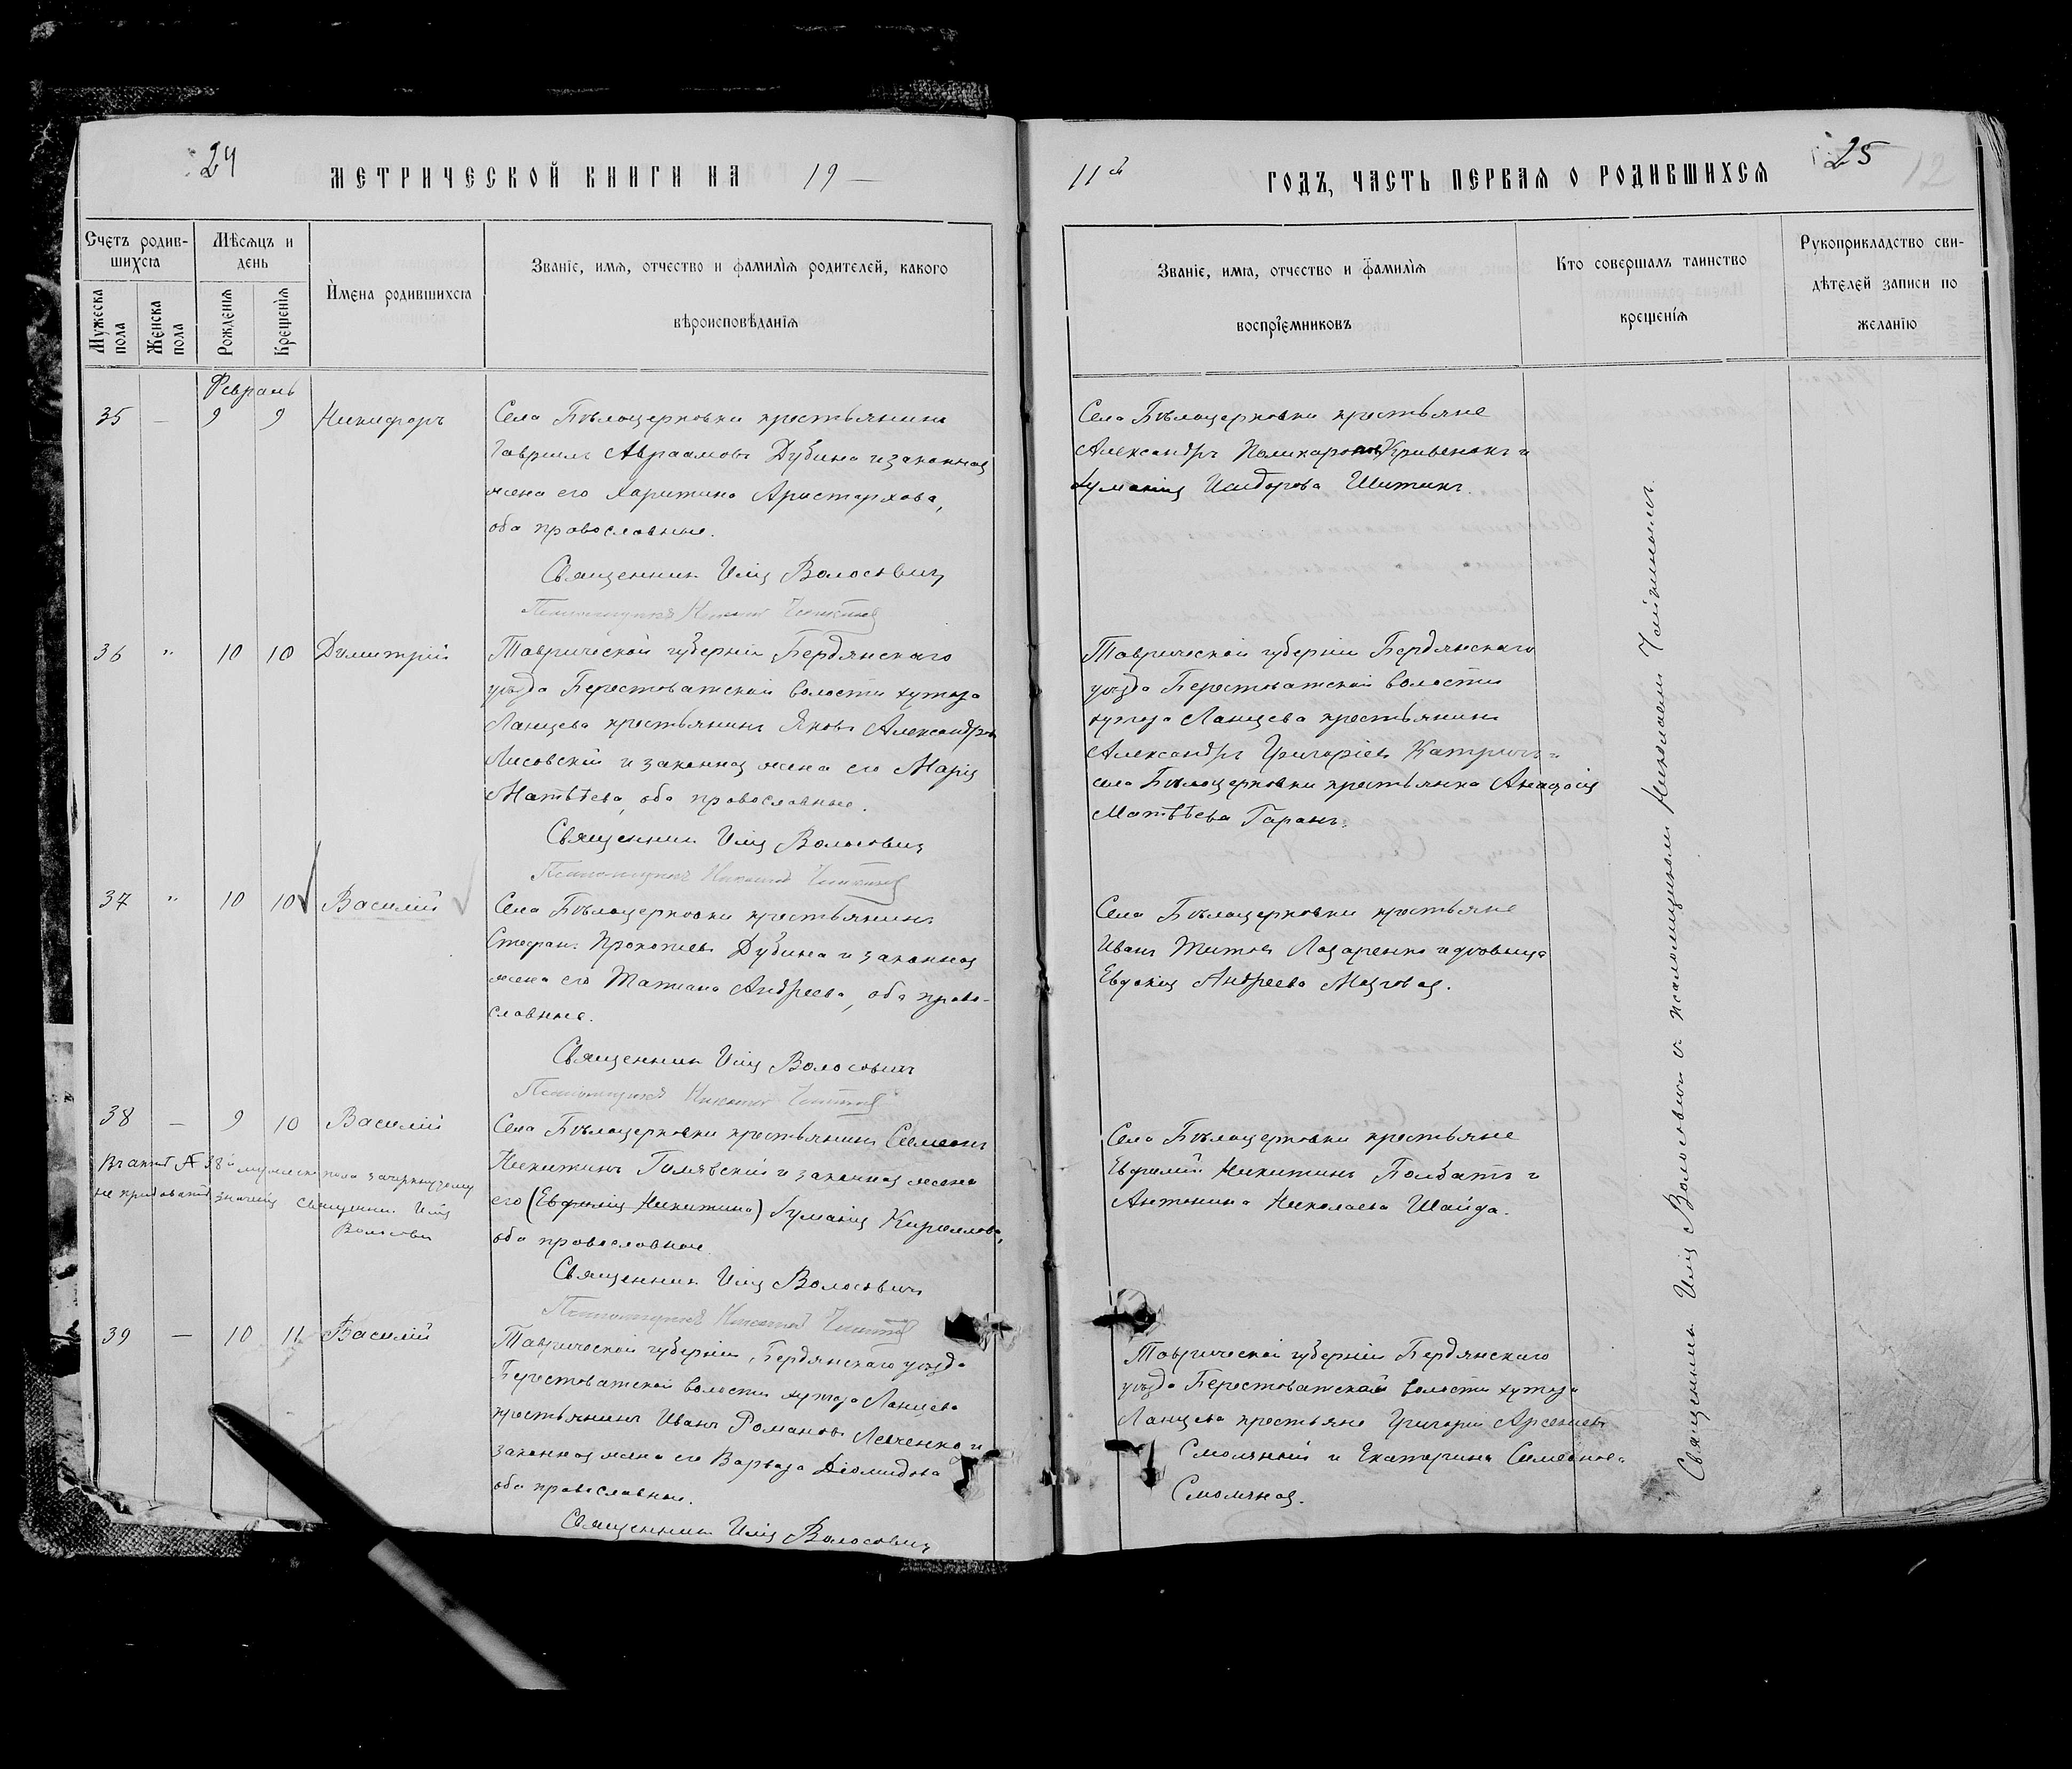 24
МЕТРИЧЕСКОЙ КНИГИ НА 19 —
Счетъ родив-
шихся
Мѣсяцъ и
день
Мужеска
пола
Женска
пола
Рожденія
Крещенія
Имена родившихся
Званіе, имя, отчество и фамилія родителей, какого
вѣроисповѣданія
Февраль
35 — 9 9 Никифоръ
Села Бѣлоцерковки крестьянинъ
Гавріилъ Авраамовъ Дубина и законная
жена его Харитина Аристархова,
оба православные.
Священникъ Илія Волосевичъ
36 " 10 10 Димитрій
Таврической губерніи Бердянскаго
уѣзда Берестоватской волости хутора
Ланцева крестьянинъ Яковъ Александровъ
Лисовскій и законная жена его Марія
Матвѣева, оба православные.
Священникъ Илія Волосевичъ
37 " 10 10 Василій
Села Бѣлоцерковки крестьянинъ
Стефанъ Прокопіевъ Дубина и законная
жена его Татіана Андреева, оба право-
славные.
Священникъ Илія Волосевичъ
38 — 9 10 Василій
Села Бѣлоцерковки крестьянинъ Симеонъ
Никитинъ Гилявскій и законная жена
его (Евфимія Никитина) Гуманія Кириллова,
оба православные.
Священникъ Илія Волосевичъ
Въ актѣ № 38й мужеска пола зачеркнутому
не придавать значенія священникъ Илія
Волосевичъ
39 — 10 11 Василій
Таврической губерніи, Бердянскаго уѣзда
Берестоватской волости хутора Ланцева
крестьянинъ Иванъ Романовъ Левченко и
законная жена его Варвара Діомидова
оба православные.
Священникъ Илія Волосевичъ
11й
ГОДЪ, ЧАСТЬ ПЕРВАЯ О РОДИВШИХСЯ
25
12
Званіе, имя, отчество и фамилія
воспріемниковъ
Кто совершалъ таинство
крещенія
Рукоприкладство сви-
дѣтелей записи по
желанію
Села Бѣлоцерковки крестьяне
Александръ Поликарповъ Кривенокъ и
Исидорова Шитикъ.
Таврической губерніи Бердянскаго
уѣзда Берестоватской волости
хутора Ланцева крестьянинъ
Александръ Григоріевъ Катричъ и
села Бѣлоцерковки крестьянка Анастасія
Матвѣева Гаранъ.
Села Бѣлоцерковки крестьяне
Иванъ Титовъ Лазаренко и вдовица
Евдокія Андреева Мозговая.
Села Бѣлоцерковки крестьяне
Евфимій Никитинъ Полбатъ и
Антонина Николаева Шайда.
Таврической губерніи Бердянскаго
уѣзда Берестоватской волости хутора
Ланцева крестьяне Григорій Арсеніевъ
Смолянкій и Екатерина Симеонова
Смоляная.
Священникъ Илія Волосевичъ съ псаломщикомъ Николаемъ